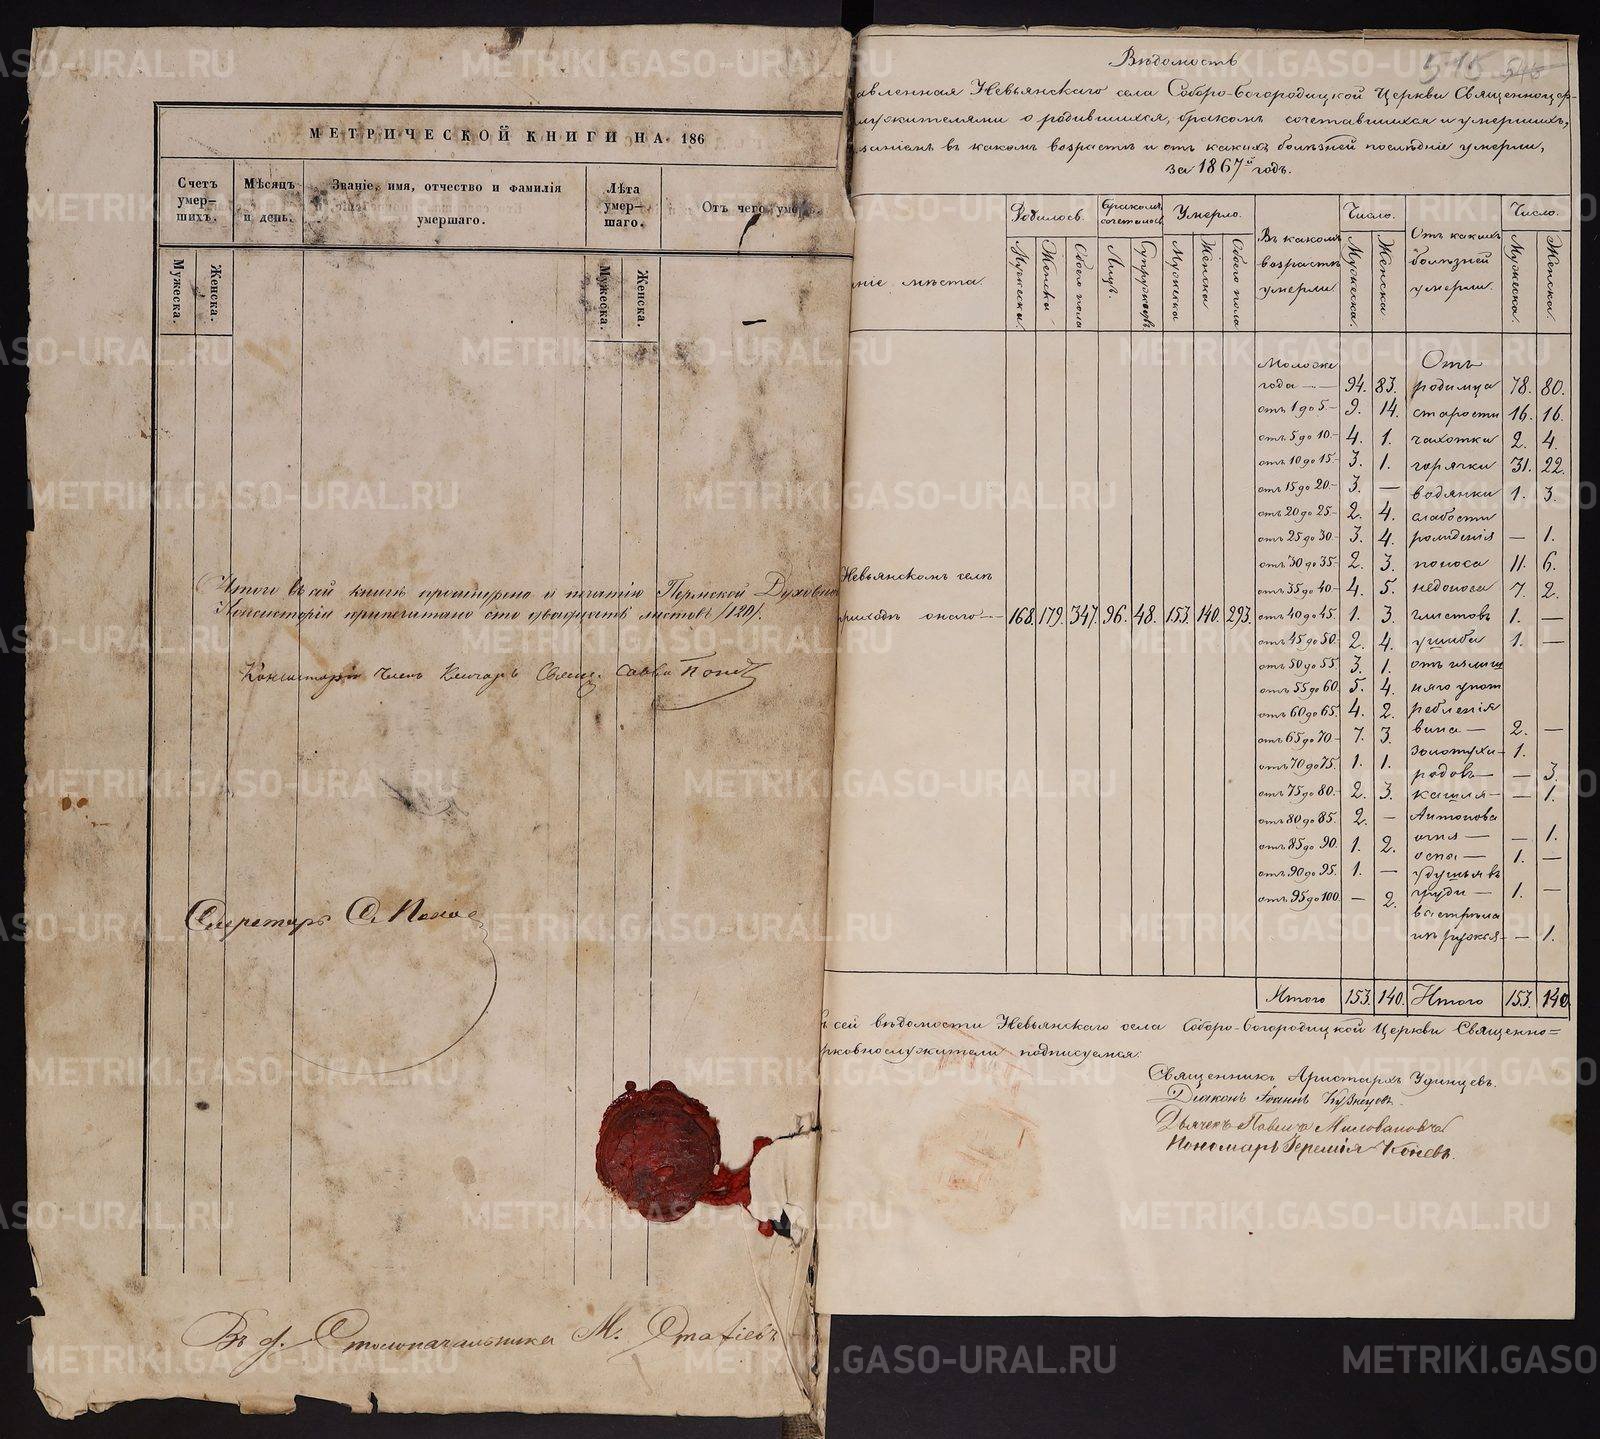 МЕТРИЧЕСКОЙ КНИГИ НА 186
Счетъ умер-шихъ.
Мѣсяцъ и день.
Званіе, имя, отчество и фамилія умершаго.
Лѣта умер-шаго.
От чего умеръ
Мужеска.
Женска.
Мужеска.
Женска.
Итого въ сей книгѣ прошнурено и печатію Пермской Духовно
Консисторіи припечатано сто двадцать листовъ /120/.
Консисторіи Членъ Ключарь Свящ. Савва Попов
Секретарь С. Попов
Въ д. Столоначальника М.
546
Вѣдомость
авленная Невьянскаго села Соборо-Богородицкой Церкви Священноцер-
лужителями о родившихся, бракомъ сочетавшихся и умершихъ,
занiемъ въ какомъ возрастѣ и отъ какихъ болѣзней послѣдніе умерли,
за 1867й годъ.
ніе мѣста.
Родилось.
Бракомъ сочеталось
Умерло.
Въ какомъ возрастѣ умерли.
Число.
Отъ какихъ болѣзней умерли.
Число.
Мужеска.
Женска
Обоего пола
Лицъ.
Супружествъ
Мужеска
Женска
Обоего пола
Мужеска.
Женска
Мужеска.
Женска.
Невьянскомъ селѣ
приходѣ онаго — 168. 179. 347. 96. 48. 153. 140. 293.
Моложе
года — 94. 83.
отъ 1 до 5. — 9. 14.
отъ 5 до 10. — 4. 1.
отъ 10 до 15. — 3. 1.
отъ 15 до 20. — 3. —
отъ 20 до 25 — 2. 4.
отъ 25 до 30 — 3. 4.
отъ 30 до 35 — 2. 3.
отъ 35 до 40 — 4. 5.
отъ 40 до 45. 1. 3.
отъ 45 до 50. 2. 4.
отъ 50 до 55. 3. 1.
отъ 55 до 60. 5. 4.
отъ 60 до 65. 4. 2.
отъ 65 до 70 — 7. 3.
отъ 70 до 75. 1. 1.
отъ 75 до 80. — 2. 3.
отъ 80 до 85. 2. —
отъ 85 до 90. 1. 2.
отъ 90 до 95. 1. —
отъ 95 до 100. — 2.
Отъ
родимца 78. 80.
старости 16. 16.
чахотки 2. 4.
горячки 31. 22.
водянки 1. 3.
слабости
рожденія — 1.
поноса 11. 6.
недоноса 7. 2.
глистовъ 1. —
ушиба 1. —
отъ излиш
няго упот
ребленія
вина — 2. —
золотухи — 1.
родовъ — — 3.
кашля — — 1.
Антонова
огня — — 1.
оспа — 1. —
удушья въ
груди — 1. —
выстрѣла
изъ ружья — — 1.
Итого 153. 140. Итого 153. 140.
сей вѣдомости Невьянскаго села Соборо-Богородицкой Церкви Священно=
рковнослужители подписуемся:
Священникъ Аристархъ Удинцевъ.
Діаконъ Іоаннъ Кузнецовъ.
Дьячекъ Павелъ Миловановъ
Пономарь Іеремія Коневъ.
METRIKI.GASO-URAL.RU